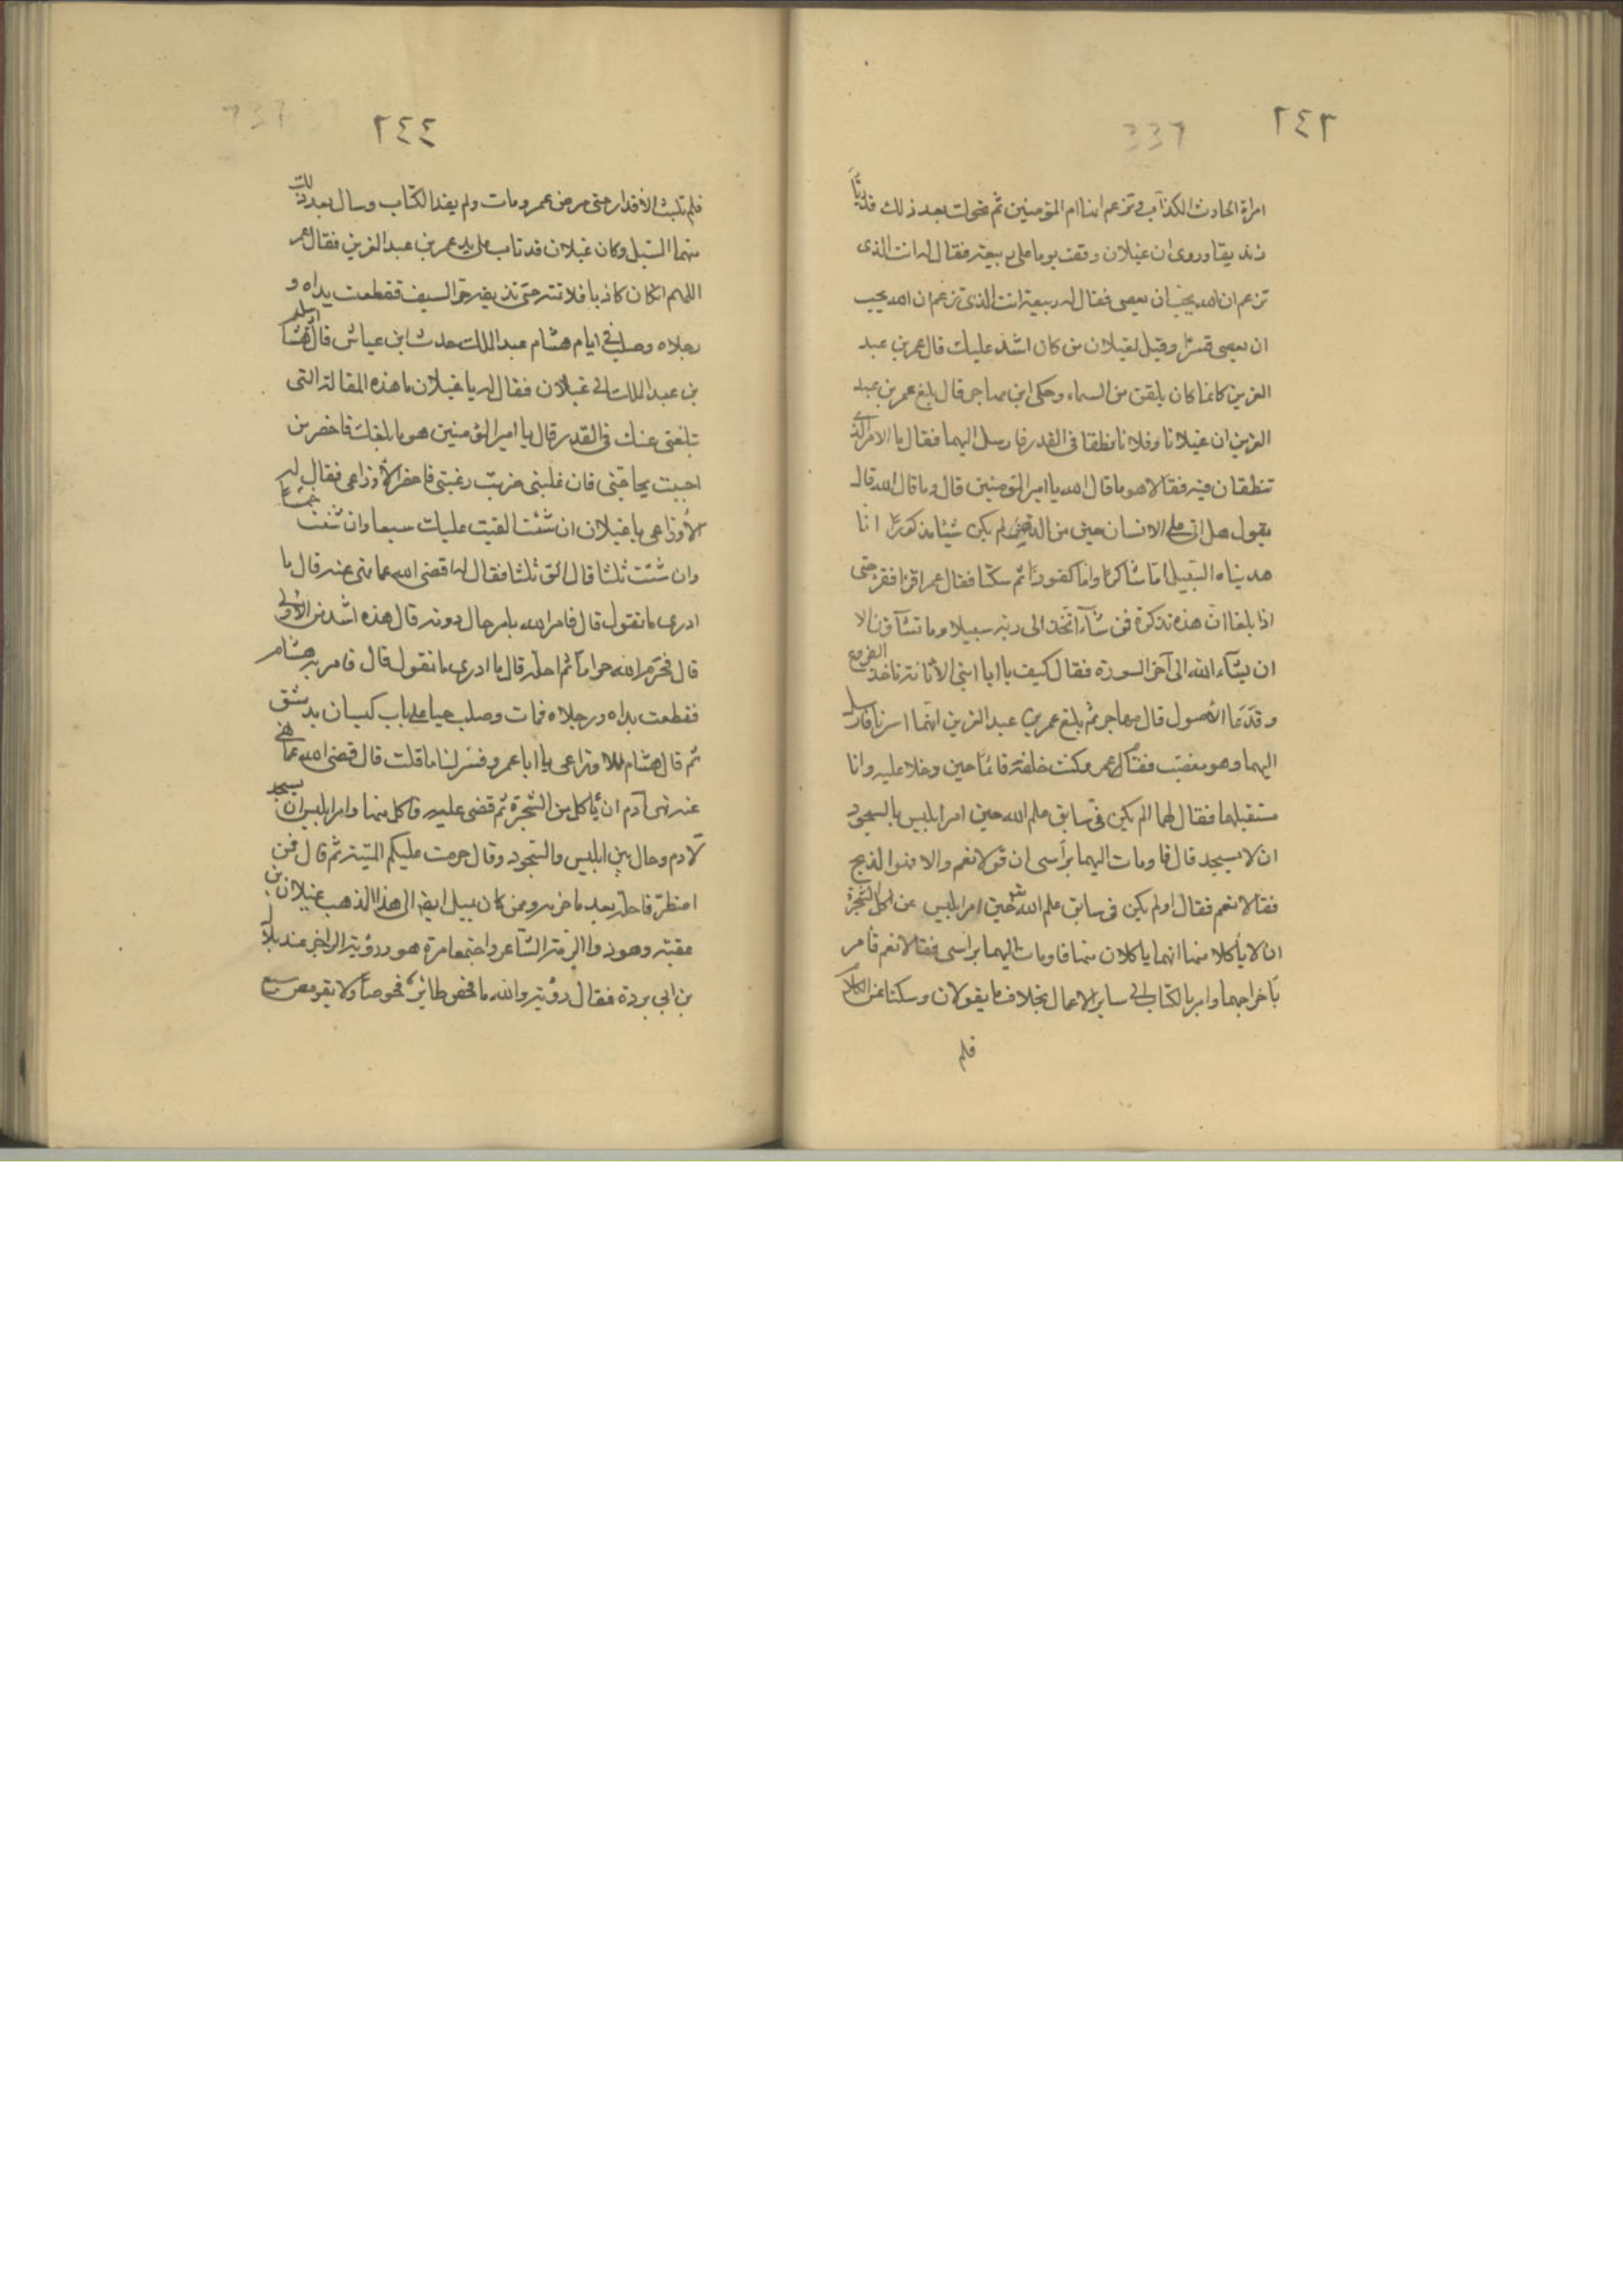 ٢٤٣
امراة الحارث الكذاب وتزعم انها ام المؤمنين ثم تحولت بعد ذلك قدريّاً
زنديقا وروى ان غيلان وقف يوما على ربيعة فقال له انت الذى
تزعم ان الله يحب ان يعصى فقال له ربيعة انت الذى تزعم ان الله يحب
ان يعصى قسرًا وقيل لغيلان من كان اشد عليك قال عمر بن عبد
العزيز كانما كان يلقن من السماء وحكى ابن مهاجر قال بلغ عمر بن عبد
العزيز ان غيلانا وفلانا نطقا فى القدر فارسل اليهما فقال ما الامر الذى
تنطقان فيه فقالا هو ما قال الله يا امير المؤمنين قال وما قال الله قال
يقول هل اتى على الانسان حين من الدهر لم يكن شيئا مذكورًا انا
هديناه السبيل امّا شاكرا وامّا كفورًا ثم سكتا فقال عمر اقرا فقرا حتى
اذا بلغا انّ هذه تذكرة فمن شآء اتّخذ الى ربّه سبيلا وما تشآؤن الا
ان يشآء الله الى آخر السورة فقال كيف يا ابنى الأتانة تاخذ الفروع
وتدعا الأصول قال مهاجر ثم بلغ عمر بن عبد العزيز انّهما اسرفا فارسل
اليهما وهو مغضب فقال عمر وكنت خلفه قائمًا حين دخلا عليه وانا
مستقبلهما فقال لهما الم يكن فى سابق علم الله حين امر ابليس بالسجود
ان لا يسجد قال فاومات اليهما برأسى ان قولا نعم والا فهو الذبح
فقالا نعم فقال اولم يكن فى سابق علم الله حين امر ابليس عن اكل الشجرة
ان لا يأكلا منها انهما ياكلان منها فاومات اليهما براسى فقالا نعم فأمر
بأخراجهما وامر بالكتاب الى ساير الاعمال بخلاف ما يقولان وسكتا عن الكلام
فلم
٢٤٤
فلم تلبث الأقدار حتى مرض عمر ومات ولم ينفذ الكتاب وسال بعد ذلك
منهما السّيل وكان غيلان قد تاب على يد عمر بن عبد العزيز فقال عمر
اللهم ان كان كاذبا فلا تمته حتى تذيقه حرّ السيف فقطعت يداه و
رجلاه وصلب فى ايام هشام عبد الملك حدث ابن عياش قال ارسل هشام
بن عبد الملك الى غيلان فقال له يا غيلان ما هذه المقالة التى
تبلغنى عنك فى القدر قال يا امير المؤمنين هو ما بلغك فاحضر من
احببت يحاجّنى فان غلبنى ضربت رقبتى فاحضر الأوزاعى فقال له
الأوزاعى يا غيلان ان شئت القيت عليك سبعا وان شئت خمسا
وان شئت ثلثا قال الق ثلثا فقال له اقضى الله عما نهى عنه قال ما
ادرى ما تقول قال فامر الله بامر حال دونه قال هذه اشد من الاولى
قال فحرّم الله حراماً ثم احلّه قال ما ادرى ما تقول قال فامر به هشام
فقطعت يداه ورجلاه فمات وصلب حيا على باب كيسان بدمشق
ثم قال هشام للاوزاعى يا ابا عمرو فسّر لنا ما قلت قال قضى الله عما نهى
عنه نهى آدم ان يأكل من الشجرة ثم قضى عليه فاكل منها وامر ابليس ان يسجد
لآدم وحال بين ابليس والسّجود وقال حرمت عليكم الميتة ثم قال فمن
اضطرّ فاحلّه بعد ما حرمه وممن كان يميل ايضا الى هذا المذهب غيلان بن
عقبة وهو ذو الرمّة الشّاعر واجتمعا مرة هو ورؤبة الراجز عند بلال
بن ابى بردة فقال رؤبة والله ما فحص طائر فحوصاً ولا تقرمص سبع